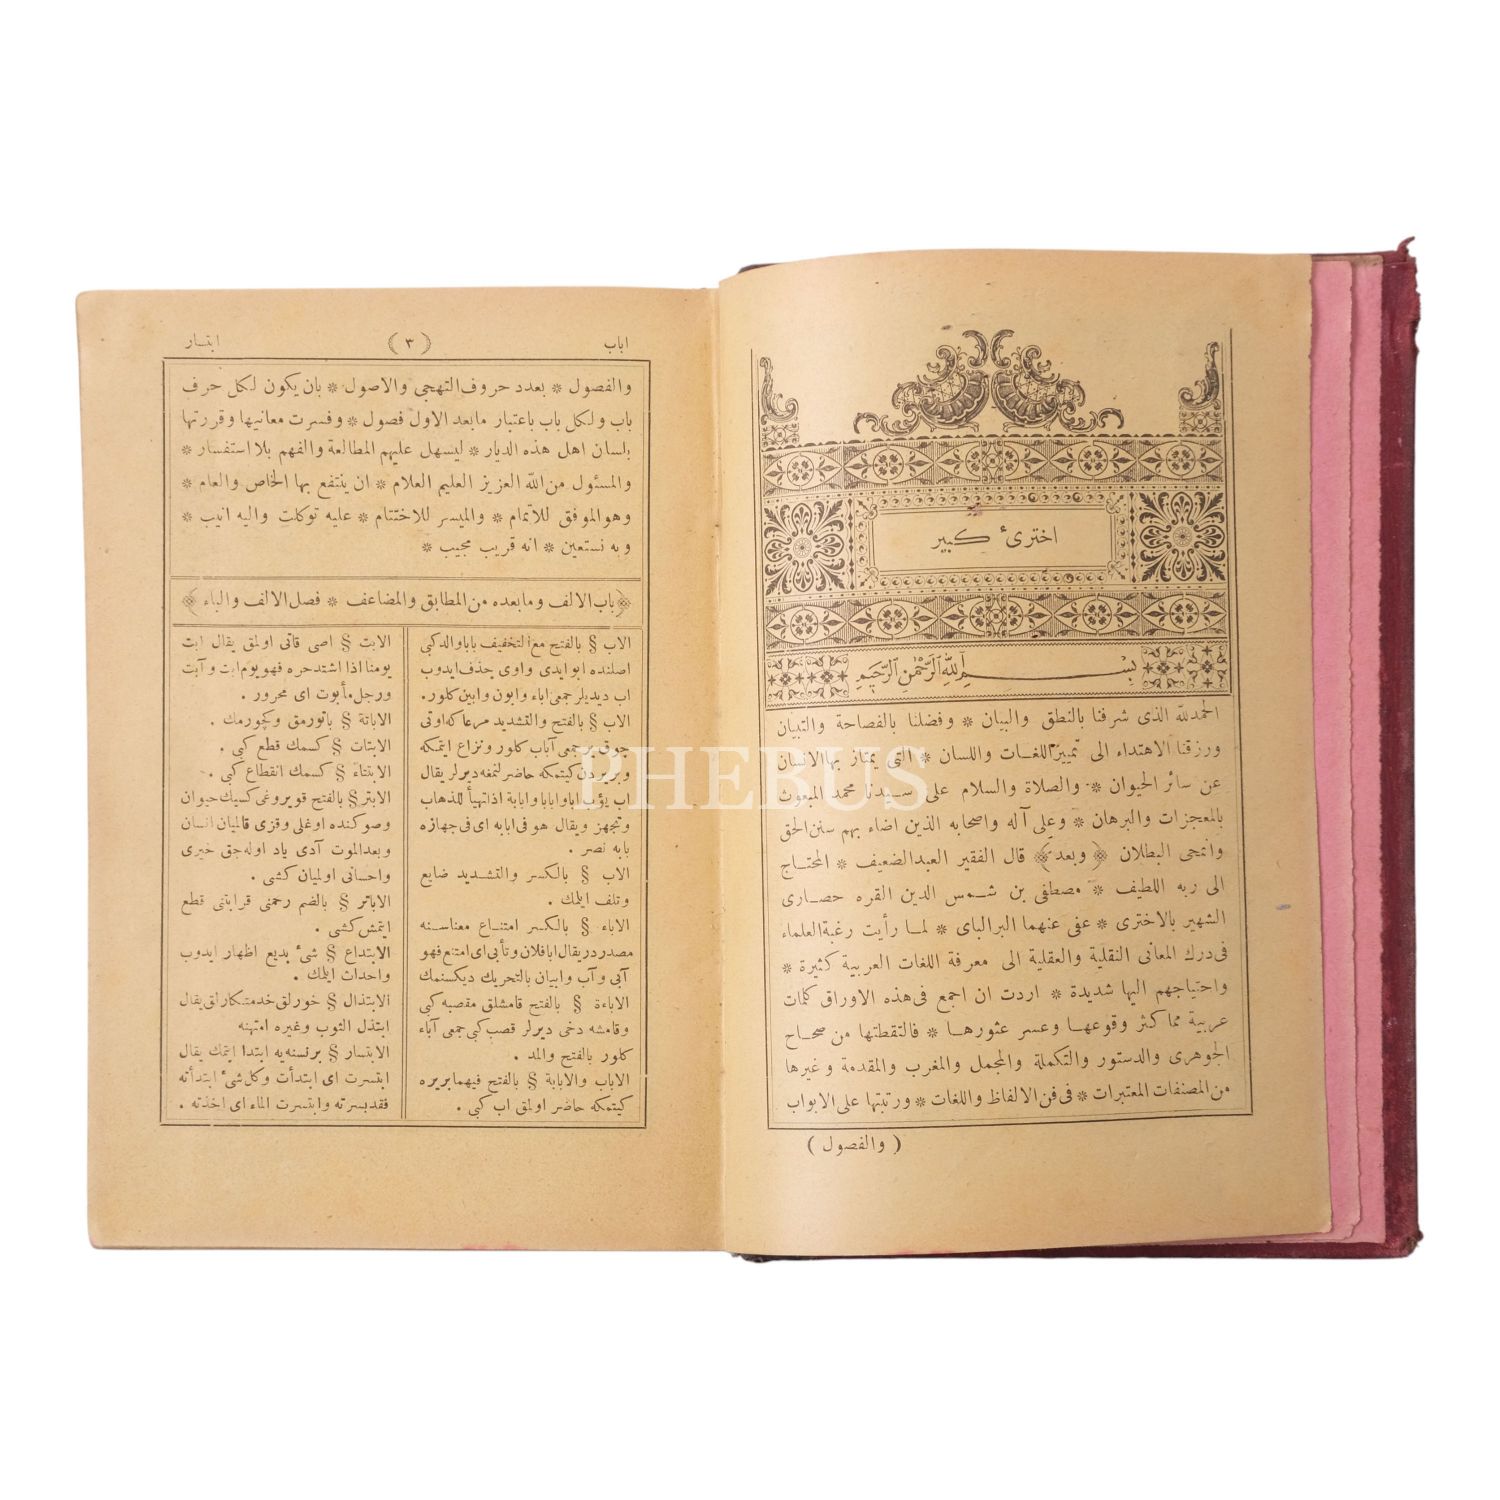 اخترئ كبير
بسم الله الرحمن الرحيم
الحمدلله الذى شرفنا بالنطق والبيان * وفضلنا بالفصاحة والتبيان
ورزقنا الاهتداء الى تمييز اللغات واللسان * التى يمتاز بها الانسان
عن سائر الحيوان * والصلاة والسلام على سيدنا محمد المبعوث
بالمعجزات والبرهان * وعلى آله واصحابه الذين اضاء بهم سنن الحق
وانمحى البطلان ﴿ وبعد ﴾ قال الفقير العبد الضعيف * المحتاج
الى ربه اللطيف * مصطفى بن شمس الدين القره حصارى
الشهير بالاخترى * عفى عنهما البر البارى * لما رأيت رغبة العلماء
فى درك المعانى النقلية والعقلية الى معرفة اللغات العربية كثيرة *
واحتياجهم اليها شديدة * اردت ان اجمع فى هذه الاوراق كلمات
عربية مما كثر وقوعها وعسر عثورها * فالتقطتها من صحاح
الجوهرى والدستور والتكملة والمجمل والمغرب والمقدمة وغيرها
من المصنفات المعتبرات * فى فن الالفاظ واللغات * ورتبتها على الابواب
( والفصول )
اباب ( ٣ ) ابتسار
والفصول * بعدد حروف التهجى والاصول * بان يكون لكل حرف
باب ولكل باب باعتبار مابعد الاول فصول * وفسرت معانيها وقررتها
بلسان اهل هذه الديار * ليسهل عليهم المطالعة والفهم بلا استفسار *
والمسئول من الله العزيز العليم العلام * ان ينتفع بها الخاص والعام *
وهو الموفق للاتمام * والميسر للاختتام * عليه توكلت واليه انيب *
وبه نستعين * انه قريب مجيب *
﴿ باب الالف ومابعده من المطابق والمضاعف * فصل الالف والباء ﴾
الاب § بالفتح مع التخفيف بابا والد كبى
اصلنده ابو ايدى واوى حذف ايدوب
اب ديديلر جمعى اباء وابون وابين كلور.
الاب § بالفتح والتشديد مرعا كه اوتى
چوق ير جمعى آباب كلور ونزاع ايتمكه
و بريردن كيتمكه حاضر لنمغه ديرلر يقال
اب يؤب ابا وابابا وابابة اذا تهيأ للذهاب
وتجهز ويقال هو فى ابابه اى فى جهازه
بابه نصر .
الاب § بالكسر والتشديد ضايع
وتلف ايلمك .
الاباء § بالكسر امتناع معناسنه
مصدر در يقال ابا فلان وتأبى اى امتنع فهو
آبى وآب وابيان بالتحريك ديكسنمك
الاباءة § بالفتح قامشلق مقصبه كبى
وقامشه دخى ديرلر قصب كبى جمعى آباء
كلور بالفتح والمد .
الاباب والابابة § بالفتح فيهما بريره
كيتمكه حاضر اولمق اب كبى .
الابت § اصى قاتى اولمق يقال ابت
يومنا اذا اشتد حره فهو يوم ابت وآبت
ورجل مأبوت اى محرور .
الاباتة § ياتورمق وكچورمك .
الابتات § كسمك قطع كبى .
الابتتاء § كسمك انقطاع كبى .
الابتر § بالفتح قويروغى كسيك حيوان
وصوكنده اوغلى وقزى قالميان انسان
وبعد الموت آدى ياد اوله جق خيرى
واحسانى اولميان كشى .
الاباتر § بالضم رحمنى قرابتنى قطع
ايتمش كشى .
الابتداع § شئ بديع اظهار ايدوب
واحداث ايلمك .
الابتذال § خورلق خدمتكارلق يقال
ابتذل الثوب وغيره امتهنه
الابتسار § برنسنه يه ابتدا ايتمك يقال
ابتسرت اى ابتدأت وكل شئ ابتدأته
فقد بسرته وابتسرت الماء اى اخذته .
PHEBUS